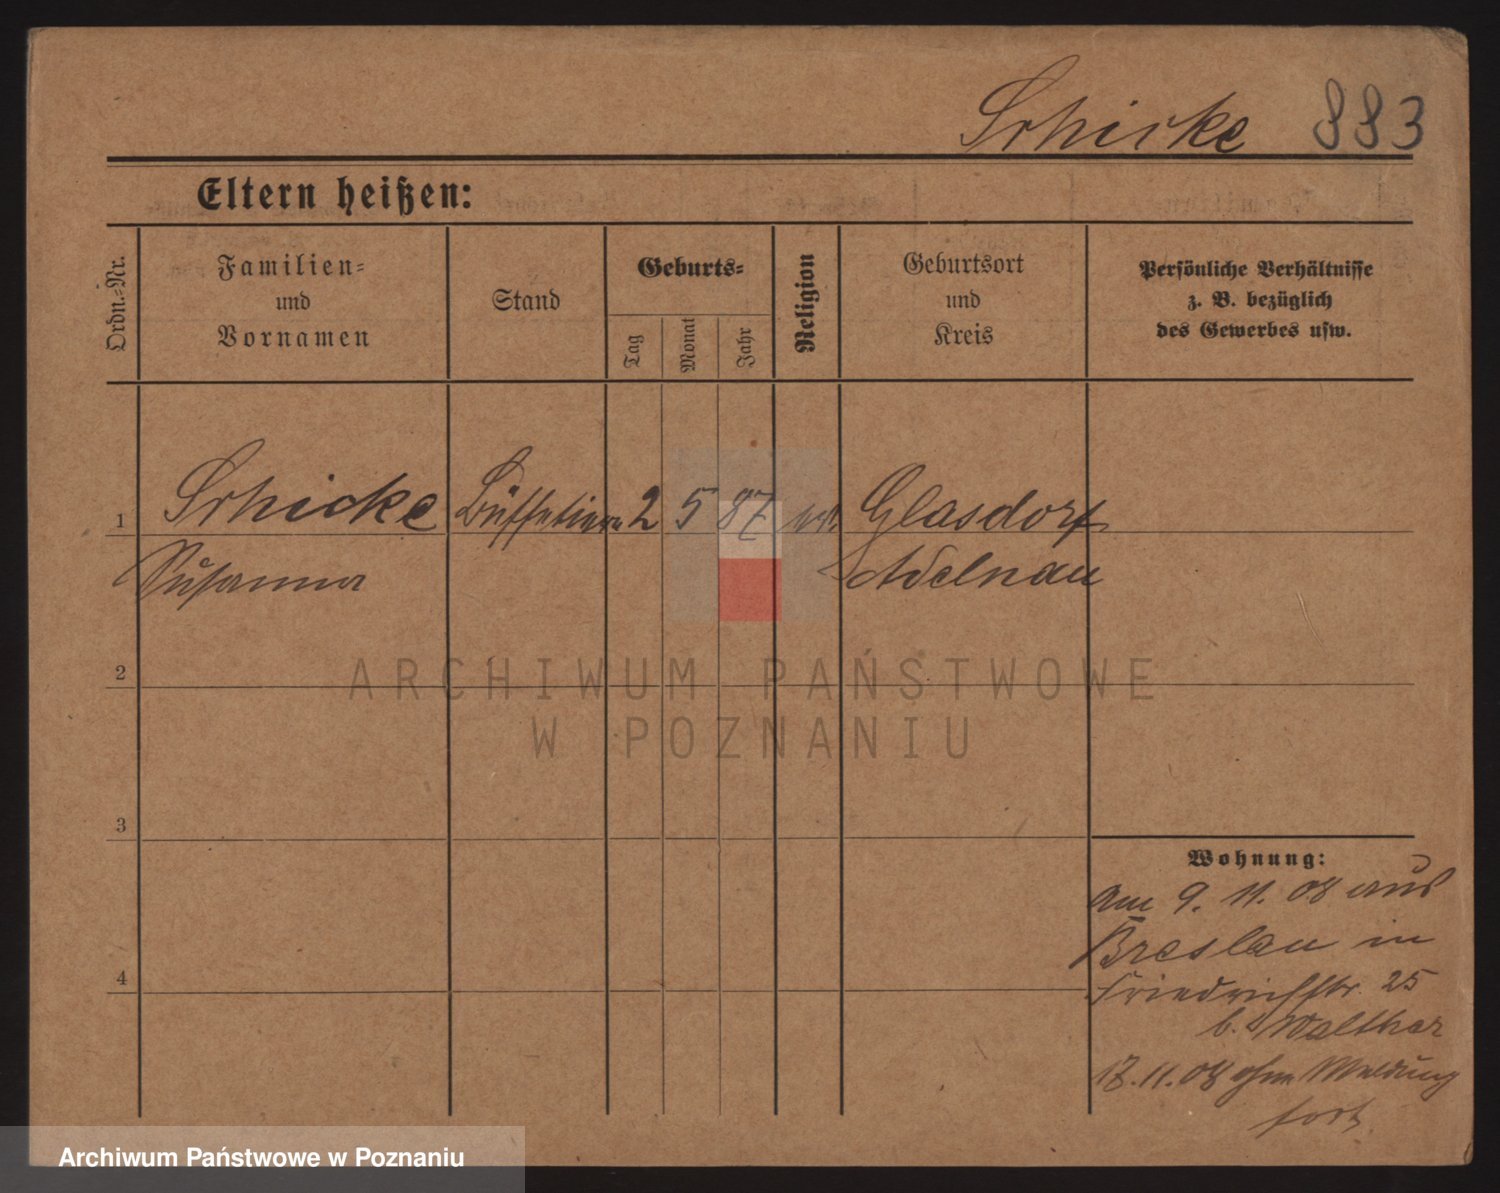 Schicke 883
Eltern heißen:
Ordn.-Nr.
Familien-
und
Vornamen
Stand
Geburts-
Tag
Monat
Jahr
Religion
Geburtsort
und
Kreis
Persönliche Verhältnisse
z. B. bezüglich
des Gewerbes usw.
1 Schicke Büffetiere 2 5 87 Glasdorf
Susanna Adelnau
2
3
4
Wohnung:
Am 9. 11. 08 aus
Breslau in
Friedrichstr. 25
b. Walther
17. 11. 08 ohne Meldung
fort
ARCHIWUM PAŃSTWOWE
W POZNANIU
Archiwum Państwowe w Poznaniu